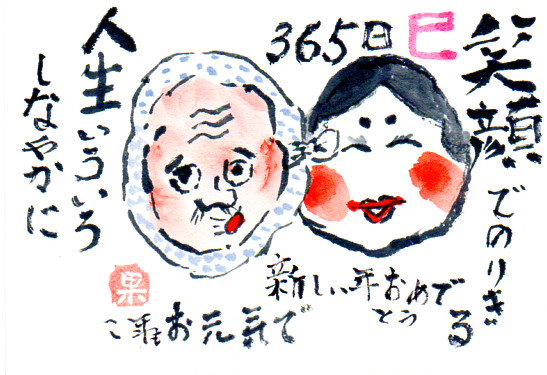 巳
365日
笑顔でのりきる
人生いろいろ
しなやかに
新しい年おめでとう
お元気で
果